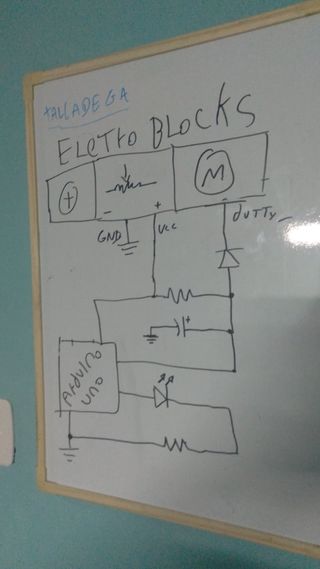 tALLADEGA
ELETTO BLOCKS
+
M
- +
GND VCC dUTTY
+
ArdUiNO
UNO